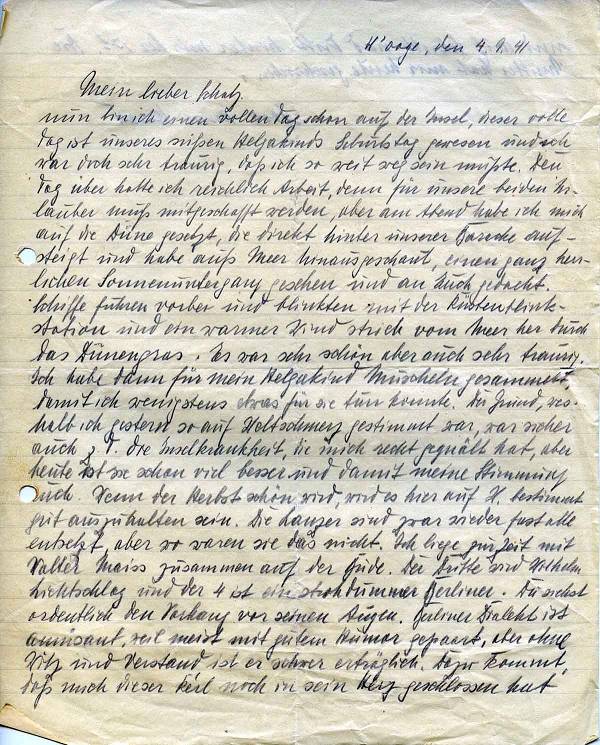 W'ooge, den 4.9.41
Mein lieber Schatz.
nun bin ich einen vollen Tag schon auf der Insel, dieser volle
Tag ist unseres süßen Helgakinds Geburtstag gewesen und ich
war doch sehr traurig, daß ich so weit weg sein mußte. Den
Tag über hatte ich reichlich Arbeit, denn für unsere beiden Ur-
lauber muß mitgeschafft werden, aber am Abend habe ich mich
auf die Düne gesetzt, die direkt hinter unserer Baracke auf-
steigt und habe aufs Meer hinausgeschaut, einen ganz herr-
lichen Sonnenuntergang gesehen und an Euch gedacht.
Schiffe fuhren vorbei und blinkten mit der Küstenblink-
station und ein warmer Wind strich vom Meer her durch
das Dünengras. Es war sehr schön aber auch sehr traurig.
Ich habe dann für mein Helgakind Muscheln gesammelt,
damit ich wenigstens etwas für sie tun konnte. Der Grund, wes-
halb ich gestern so auf Weltschmerz gestimmt war, war sicher
auch z. T. die Inselkrankheit, die mich recht gequält hat, aber
heute ist sie schon viel besser und damit meine Stimmung
auch. Wenn der Herbst schön wird, wird es hier auf W. bestimmt
gut auszuhalten sein. Die sind zwar wieder fast alle
entsetzt, aber wo waren sie das nicht. Ich liege zur Zeit mit
Walter Maiss zusammen auf der Bude. Der Dritte wird Wilhelm
Lichtschlag und der 4 ist ein strohdummer Berliner. Du siehst
ordentlich den Vorhang vor seinen Augen. Berliner Dialekt ist
amüsant, weil meist mit gutem Humor gepaart, aber ohne
Witz und Verstand ist er schwer erträglich. Dazu kommt,
daß mich dieser Kerl noch in sein Herz geschlossen hat